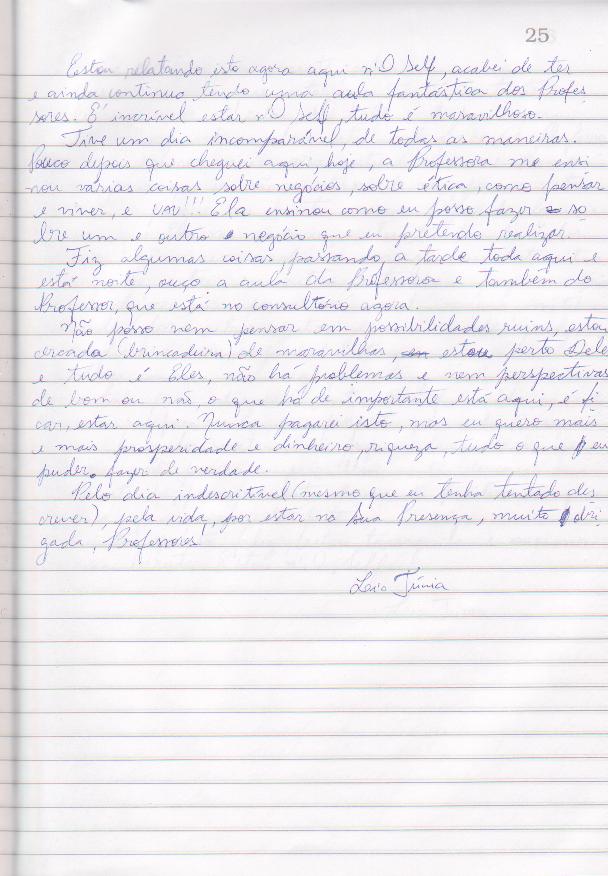 25
Estou relatando isto agora aqui n'O Self, acabei de ter
e ainda continuo tendo uma aula fantástica dos Profes
sores. É incrível estar n'O Self, tudo é maravilhoso.
Tive um dia incomparável, de todas as maneiras.
Pouco depois que cheguei aqui, hoje, a Professora me ensi
nou várias coisas sobre negócios, sobre ética, como pensar
e viver, e UAU!!! Ela ensinou como eu posso fazer so
bre um e outro negócio que eu pretendo realizar.
Fiz algumas coisas passando, a tarde toda aqui e
está noite, ouço a aula da Professora e também do
Professor, que está no consultório agora.
Não posso nem pensar em possibilidades ruins, estou
cercada (brincadeira) de maravilhas, estou perto Deles
e tudo é Eles, não há problemas e nem perspectivas
de bom ou não, o que há de importante está aqui, é fi
car, estar aqui. Nunca pagarei isto, mas eu quero mais
e mais prosperidade e dinheiro, riqueza, tudo o que eu
puder fazer de verdade.
Pelo dia indescritível (mesmo que eu tenha tentado des
crever), pela vida, por estar na Sua Presença, muito obri
gada, Professores!
Júnia